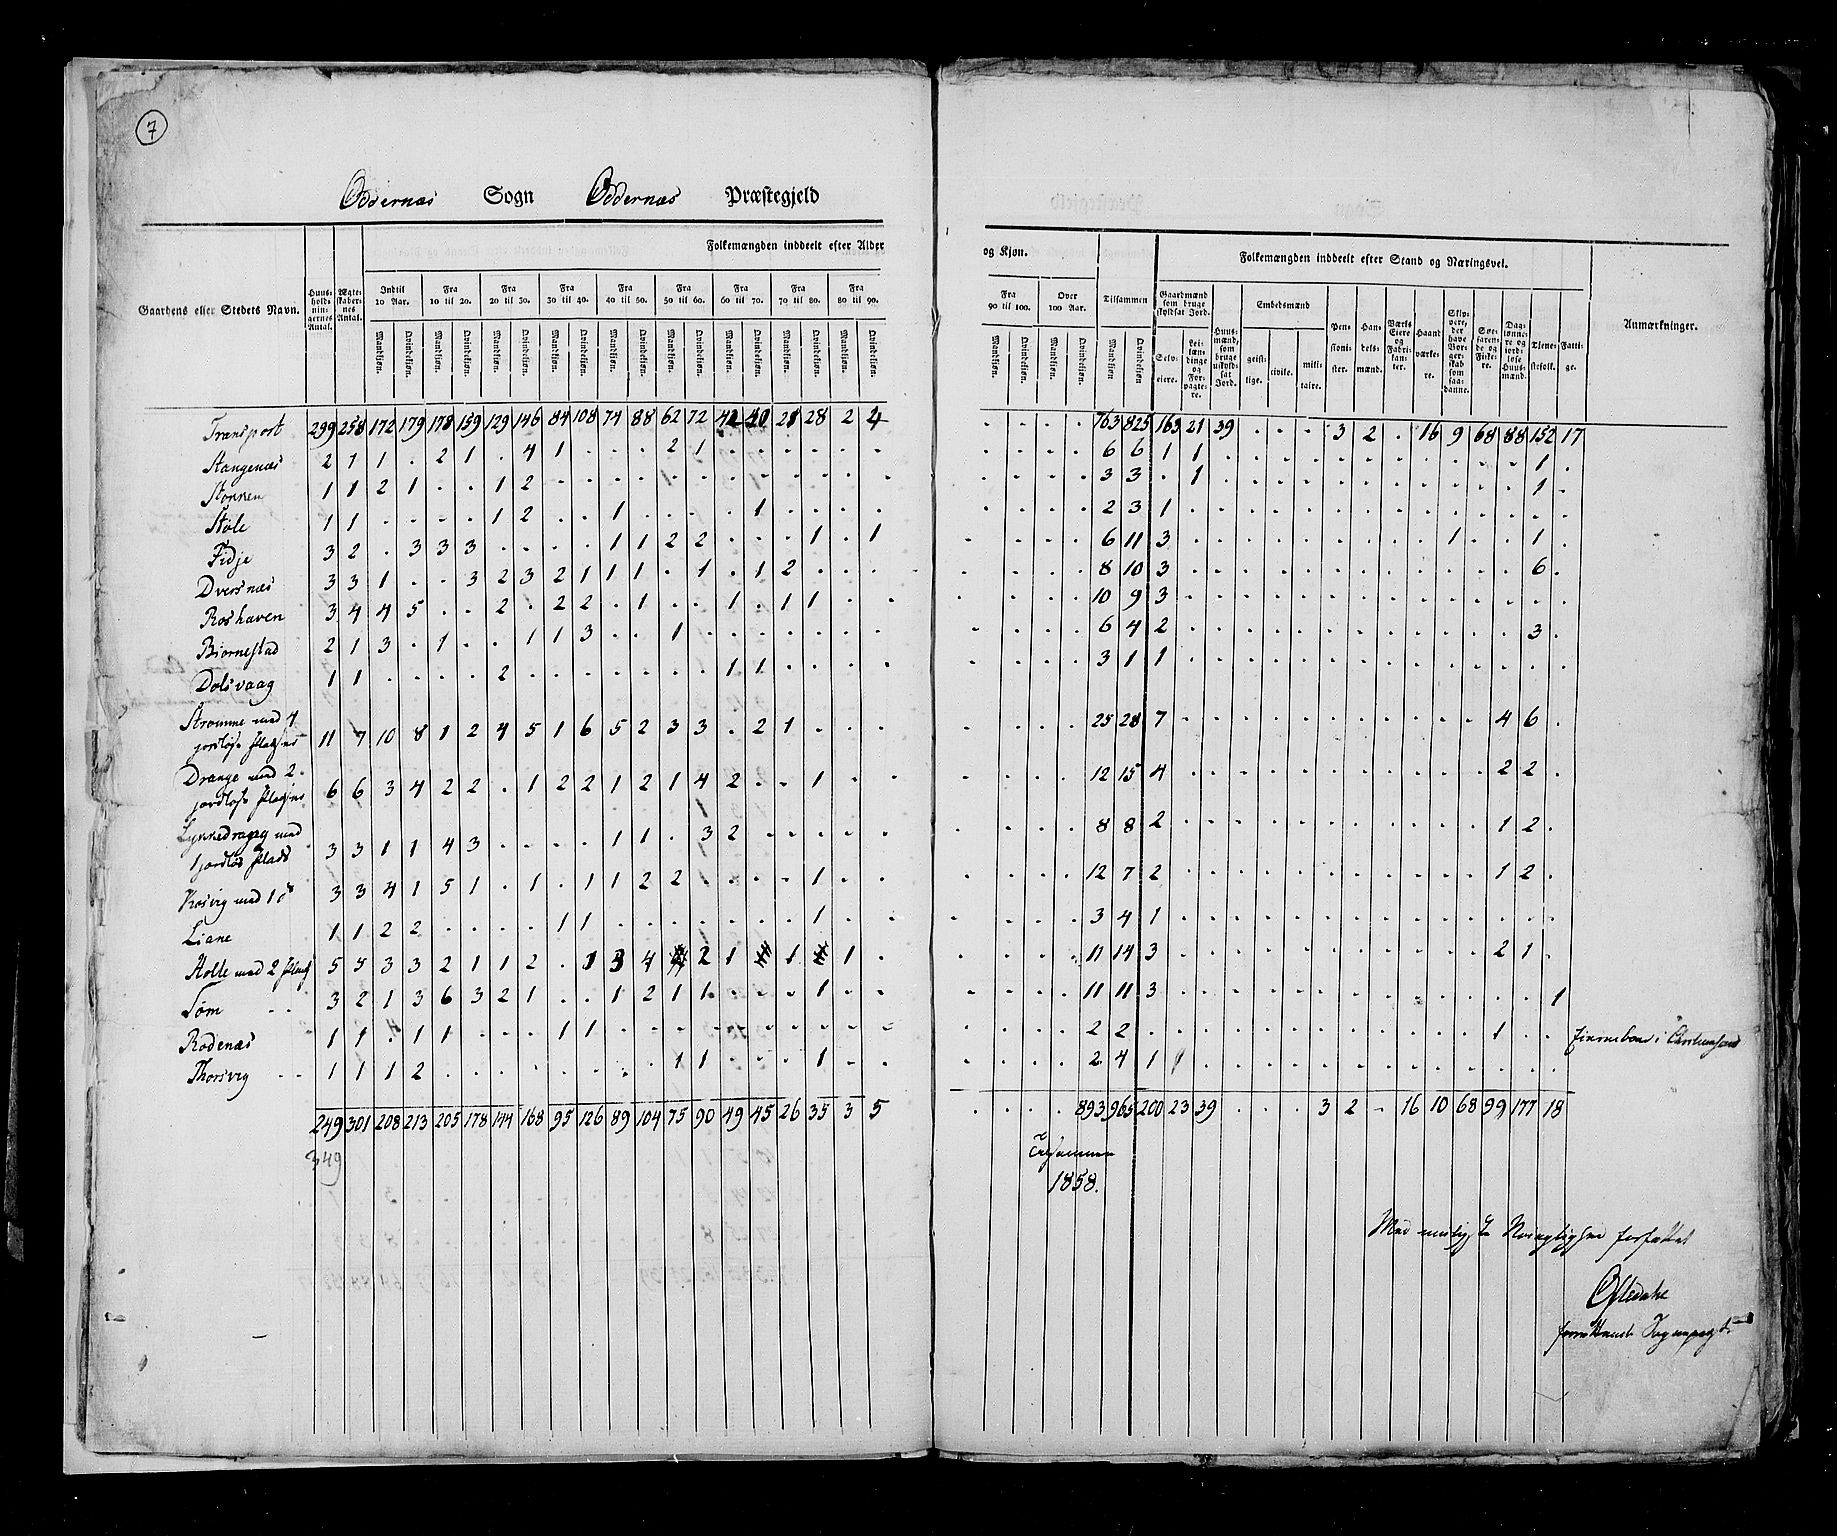 7
Oddernæs Sogn Oddernæs Præstegjeld
Folkemængden inddeelt efter Alder og Kjøn.
Folkemængden inddeelt efter Stand og Næringsvei.
Gaardens eller Stedets Navn.
Huusholdningernes Antal.
Ægteskabernes Antal.
Indtil 10 Aar. Fra 10 til 20. Fra 20 til 30. Fra 30 til 40. Fra 40 til 50. Fra 50 til 60. Fra 60 til 70. Fra 70 til 80. Fra 80 til 90. Fra 90 til 100. Over 100 Aar. Tilsammen
Mandkjøn. Qvindekjøn. Mandkjøn. Qvindekjøn. Mandkjøn. Qvindekjøn. Mandkjøn. Qvindekjøn. Mandkjøn. Qvindekjøn. Mandkjøn. Qvindekjøn. Mandkjøn. Qvindekjøn. Mandkjøn. Qvindekjøn. Mandkjøn. Qvindekjøn. Mandkjøn. Qvindekjøn. Mandkjøn. Qvindekjøn. Mandkjøn Qvindekjøn
Gaardmænd som bruge skyldsat Jord.
Selveiere. Leilændinge og Forpagtere.
Huusmænd, som bruge uskyldsat Jord.
Embedsmænd
geistlige. civile. militaire.
Pensionister.
Handelsmænd.
Værks Eiere og Fabrikanter.
Haandværkere.
Skippere, der have Borgerskab som saadanne.
Søefarende og Fiskere.
Daglønnere og jordløse Huusmænd.
Tjenestefolk.
Fattige.
Anmærkninger.
Transport 299 258 172 179 178 159 129 146 84 108 74 88 62 72 42 40 21 28 2 4 . . . . 763 825 163 21 39 . . . 3 2 . 16 9 68 88 152 17
Stangenæs 2 1 1 . 2 1 . 4 1 . . . 2 1 . . . . . . . . . . 6 6 1 1 . . . . . . . . . . . 1 .
Stokken 1 1 2 1 . . 1 2 . . . . . . . . . . . . . . . . 3 3 . 1 . . . . . . . . . . . 1 .
Støle 1 1 . . . . 1 2 . . 1 . . . . 1 . . . . . . . . 2 3 1
Fidje 3 2 . 3 3 3 . . . . 1 1 2 2 . . . 1 . 1 . . . . 6 11 3 . . . . . . . . . 1 . . 1 .
Dversnæs 3 3 1 . . 3 2 3 2 1 1 1 . 1 . 1 2 . . . . . . . 8 10 3 . . . . . . . . . . . . 6 .
Roshaven 3 4 4 5 . . 2 . 2 2 . 1 . . 1 . 1 1 . . . . . . 10 9 3
Biornestad 2 1 3 . 1 . . 1 1 3 . . 1 . . . . . . . . . . . 6 4 2 . . . . . . . . . . . . 3 .
Dolsvaag 1 1 . . . . 2 . . . . . . . 1 1 . . . . . . . . 3 1 1
Strømme med 4
jordløse Pladse 11 7 10 8 1 2 4 5 1 6 5 2 3 3 . 2 1 . . . . . . . 25 28 7 . . . . . . . . . . . 4 6 .
Drange med 2
jordløse Pladse 6 6 3 4 2 2 . 1 2 2 1 2 1 4 2 . . 1 . . . . . . 12 15 4 . . . . . . . . . . . 2 2 .
Lykkedragsg med
1 jordløs Plads 3 3 1 1 4 3 . . . . 1 1 . 3 2 . . . . . . . . . 8 8 2 . . . . . . . . . . . 1 2 .
Korsvig med 1 d° 3 3 4 1 5 1 . 1 . 1 1 2 2 . . . . 1 . . . . . . 12 7 2 . . . . . . . . . . . 1 2 .
Liane 1 1 2 2 . . . . 1 1 . . . . . . . 1 . . . . . . 3 4 1
Holte med 2 Plads 5 5 3 3 2 1 1 2 . 1 3 4 2 1 1 1 . . . . 11 14 3 . . . . . . . . . . . 2 1 .
Søm 3 2 1 3 6 3 2 1 . . 1 2 1 1 . . . 1 . . . . . . 11 11 3 . . . . . . . . . . . . . 1
Rødenæs 1 1 . 1 1 . . . 1 1 . . . . . . . . . . . . . . 2 2 . . . . . . . . . . . . 1 . .
Thorsvig 1 1 1 2 . . . . . . . . 1 1 . . . 1 . . . . . . 2 4 1
249 301 208 213 205 178 144 168 95 126 89 104 75 90 49 45 26 35 3 5 . . . . 893 965 200 23 39 . . . 3 2 . 16 10 68 99 177 18
349
Tilsammen
1858.